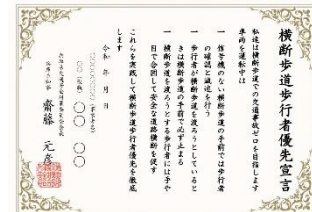 横断歩道歩行者優先宣言
私達は横断歩道での交通事故ゼロを目指します
車両を運転中は
一 信号機のない横断歩道の手前では歩行者
の確認と減速を行う
一 歩行者が横断歩道を渡ろうとしていると
きは横断歩道の手前で必ず止まる
一 横断歩道を渡ろうとする歩行者には手や
目で合図して安全な道路横断を促す
これらを実践して横断歩道歩行者優先を徹底
します
令和 年 月
○○○○○○○○(事業者名)
○○(役職) ○○ ○○
兵庫県知事 齋藤 元彦